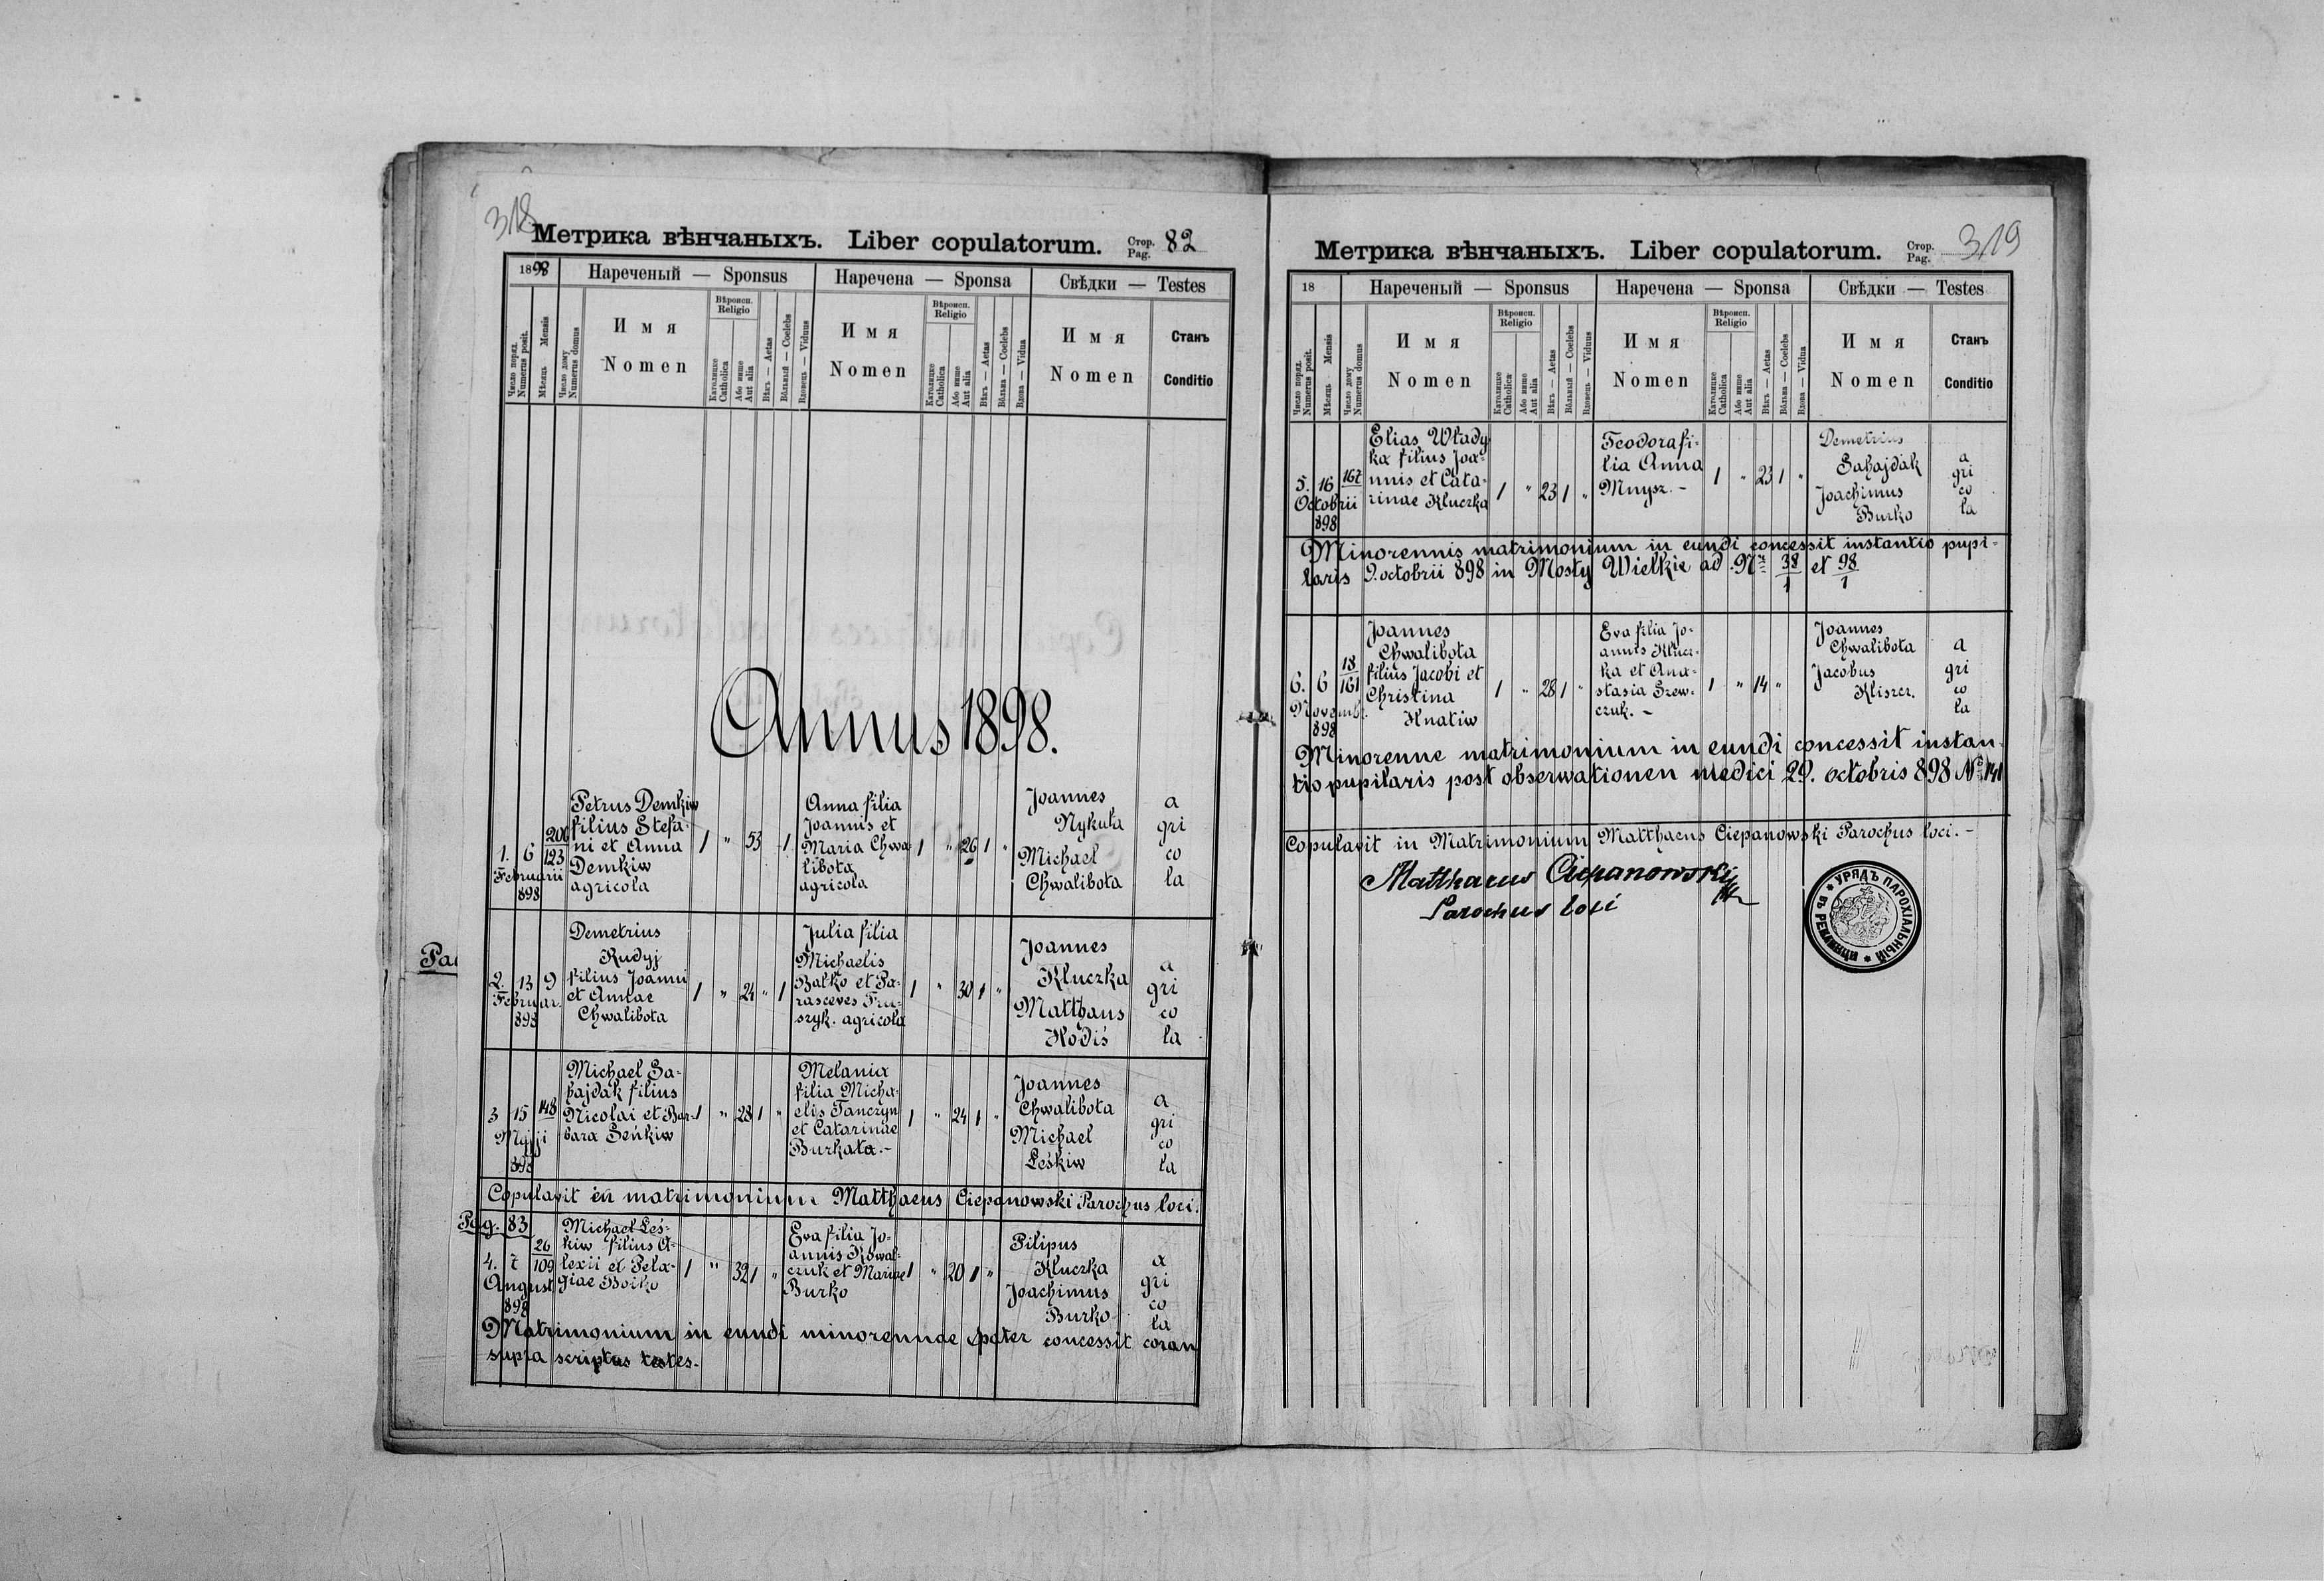 318
Метрика вѣнчаныхъ. Liber copulatorum. Стор. Pag. 82
1898
Нареченый — Sponsus
Наречена — Sponsa
Свѣдки — Testes
Число поряд. Numerus posit.
Мѣсяць Mensis
Число дому Numerus domus
Имя
Nomen
Вѣроисп. Religio
Католицке Catholica
Або инше Aut alia
Вѣкъ — Aetas
Вôльный — Coelebs
Вдовець — Viduus
Имя
Nomen
Вѣроисп. Religio
Католицке Catholica
Або инше Aut alia
Вѣкъ — Aetas
Вôльна — Coelebs
Вдова — Vidua
Имя
Nomen
Станъ
Conditio
Annus 1898.
1. 6 Februarii 898
200
123
Petrus Demkiw
filius Stefa-
ni et Anna
Demkiw
agricola
1 " 53 1
Anna filia
Joannis et
Maria Chwa-
libota
agricola
1 " 26 1 "
Joannes
Nykuła
Michael
Chwalibota
a
gri
co
la
2. 13 9
Februar.
898
Demetrius
Rudyj
filius Joanni
et Annae
Chwalibota
1 " 24 " 1
Julia filia
Michaelis
Bałko et Pa-
rasceves
szyk. agricola
1 " 30 1 "
Joannes
Kluczka
Matthaus
Hodiś
a
gri
co
la
3 15 148
898
Michael Sa-
hajdak filius
Nicolai et Bar-
bara Seńkiw
1 " 28 1 "
Melania
filia Micha-
elis Tanczyn
et Catarinae
Burkata.-
1 " 24 1 "
Joannes
Chwalibota
Michael
Leśkiw
a
gri
co
la
Copulavit in matrimonium Matthaeus Ciepanowski Parochus loci.
Pag. 83
4. 7
26
109
August
898
Michael Leś-
kiw filius A-
lexii et Pela-
giae Boiko
1 " 32 1 "
Eva filia Jo-
annis Kowal-
czuk et Mariae
Burko
1 " 20 1 "
Pilipus
Kluczka
Joachimus
Burko
a
gri
co
la
Matrimonium in eundi minorennae pater concessit coram
supra scriptus testes.-
Метрика вѣнчаныхъ. Liber copulatorum. Стор. Pag. 319
18
Нареченый — Sponsus
Наречена — Sponsa
Свѣдки — Testes
Число поряд. Numerus posit.
Мѣсяць Mensis
Число дому Numerus domus
Имя
Nomen
Вѣроисп. Religio
Католицке Catholica
Або инше Aut alia
Вѣкъ — Aetas
Вôльный — Coelebs
Вдовець — Viduus
Имя
Nomen
Вѣроисп. Religio
Католицке Catholica
Або инше Aut alia
Вѣкъ — Aetas
Вôльна — Coelebs
Вдова — Vidua
Имя
Nomen
Станъ
Conditio
5. 16 167
Octobrii
898
Elias Włady
ka filius Joa-
nnis et Cata-
rinae Kluczka
1 " 23 1 "
Teodora fi-
lia Anna
Mnysz.-
1 " 23 1 "
Demetrius
Sahajdak
Joachimus
Burko
a
gri
co
la
Minorennis matrimonium in eundi concessit instantio pupi-
laris 9. octobrii 898 in Mosty Wielkie ad Nr 38/1 et 98/1
6. 6
18
161
Novembr.
898
Joannes
Chwalibota
filius Jacobi et
Christina
Hnatiw
1 " 28 1 "
Eva filia Jo-
annis Klucz-
ka et Ana-
stasia Szew-
czuk.-
1 " 14 "
Joannes
Chwalibota
Jacobus
Kliszcz.
a
gri
co
la
Minorenne matrimonium in eundi concessit instan-
tio pupilaris post obserwationen medici 29. octobris 898 No 141
Copulavit in Matrimonium Matthaeus Ciepanowski Parochus loci.-
Matthaeus Ciepanowski
Parochus loci
УРЯДЪ ПАРОХІАЛЬНЫЙ